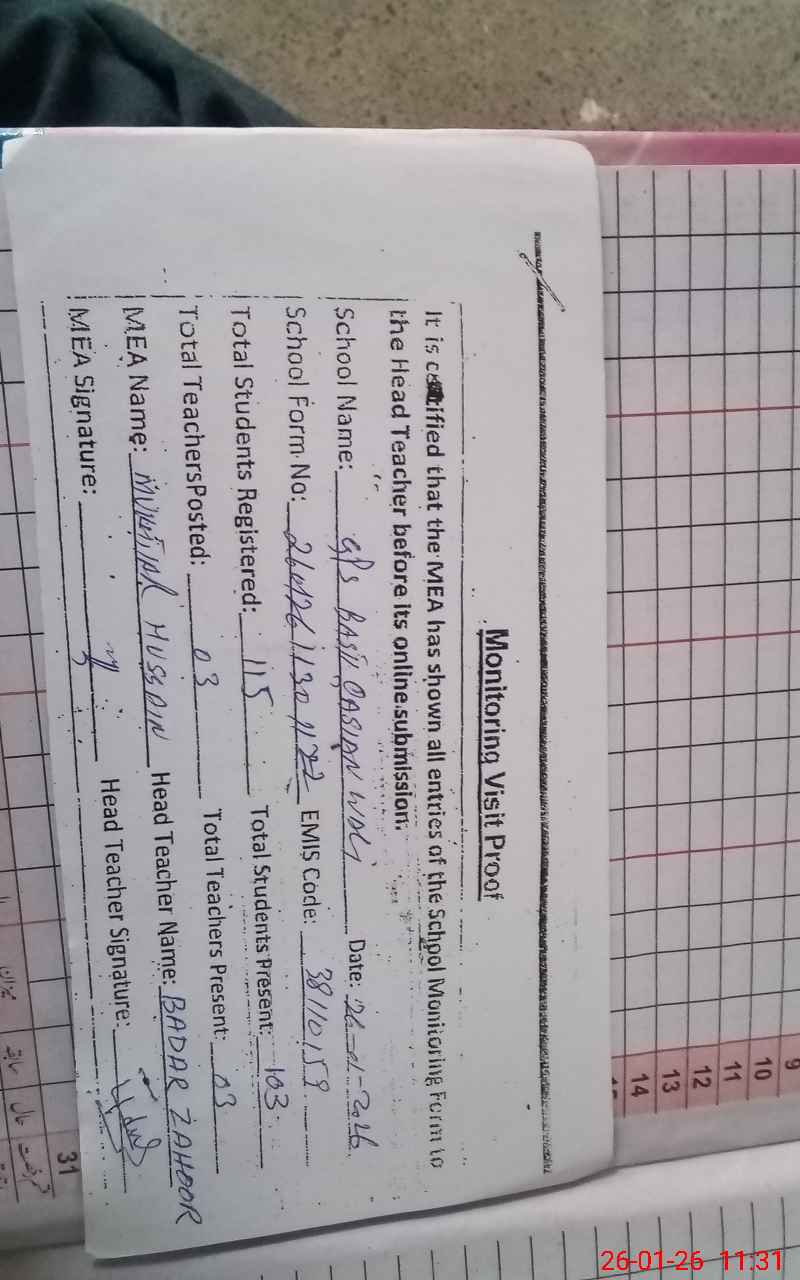 Monitoring Visit Proof
It is certified that the MEA has shown all entries of the School Monitoring Form to
the Head Teacher before its online submission.
School Name: GPS BASTI QASIAN WALI Date: 26-01-2026
School Form No: EMIS Code: 38110159
Total Students Registered: 115 Total Students Present: 103
Total TeachersPosted: 03 Total Teachers Present: 03
MEA Name: MUKHTIAR HUSSAIN Head Teacher Name: BADAR ZAHOOR
MEA Signature: Head Teacher Signature:
9
10
11
12
13
14
31
26-01-26 11:31